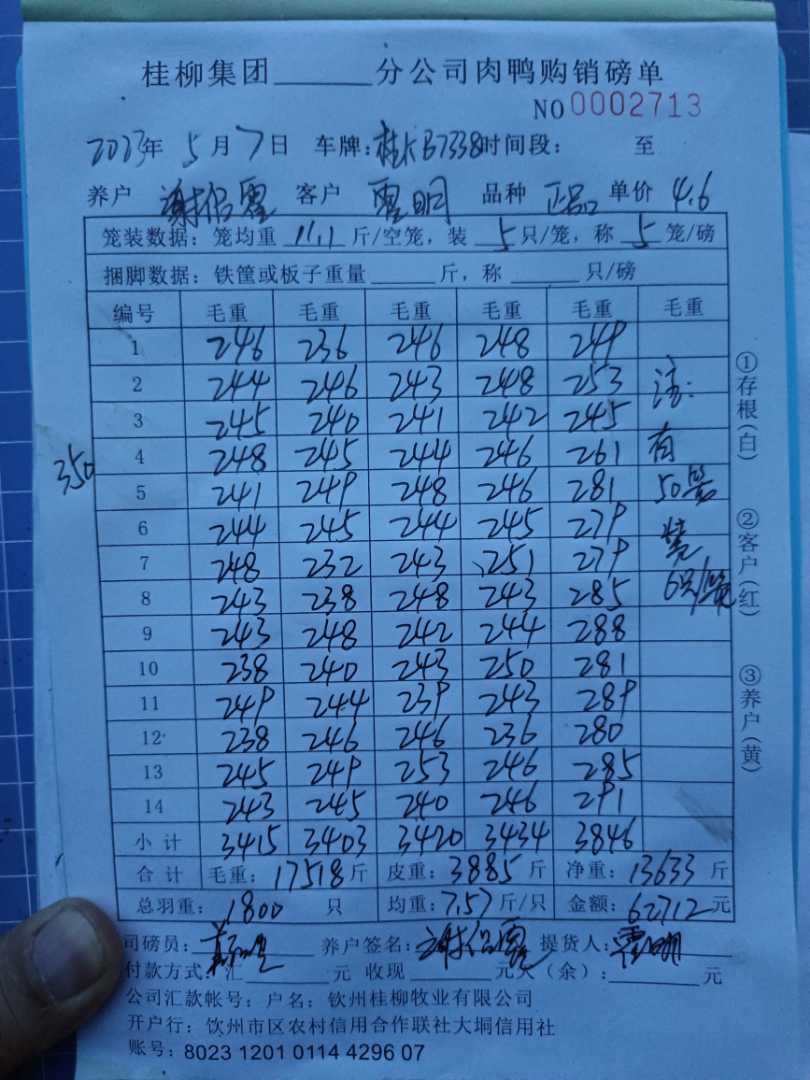 桂柳集团______分公司肉鸭购销磅单
NO 0002713
2023年 5月7日 车牌: 桂KB7338 时间段: 至
养户 谢绍霞 客户 覃明 品种 正品 单价 4.6
笼装数据: 笼均重 11.1 斤/空笼, 装 5 只/笼, 称 5 笼/磅
捆脚数据: 铁筐或板子重量______斤, 称______只/磅
编号 毛重 毛重 毛重 毛重 毛重 毛重
1 246 236 246 248 249
2 244 246 243 248 253 注:
3 245 240 241 242 245
350
4 248 245 244 246 261 有
5 241 249 248 246 281 50笼
6 244 245 244 245 279 装
7 248 232 243 251 279
8 243 238 248 243 285 6只/笼
9 243 248 242 244 288
10 238 240 243 250 281
11 249 244 239 243 289
12 238 246 246 236 280
13 245 249 253 246 285
14 243 245 240 246 291
小计 3415 3403 3420 3434 3846
合计 毛重: 17518斤 皮重: 3885斤 净重: 13633斤
总羽重: 1800 只 均重: 7.57斤/只 金额: 62712元
司磅员: 养户签名: 谢绍霞 提货人: 覃明
付款方式: 汇______元 收现______元欠(余): ______元
公司汇款帐号: 户名: 钦州桂柳牧业有限公司
开户行: 饮州市区农村信用合作联社大垌信用社
账号: 8023 1201 0114 4296 07
①存根(白)
②客户(红)
③养户(黄)